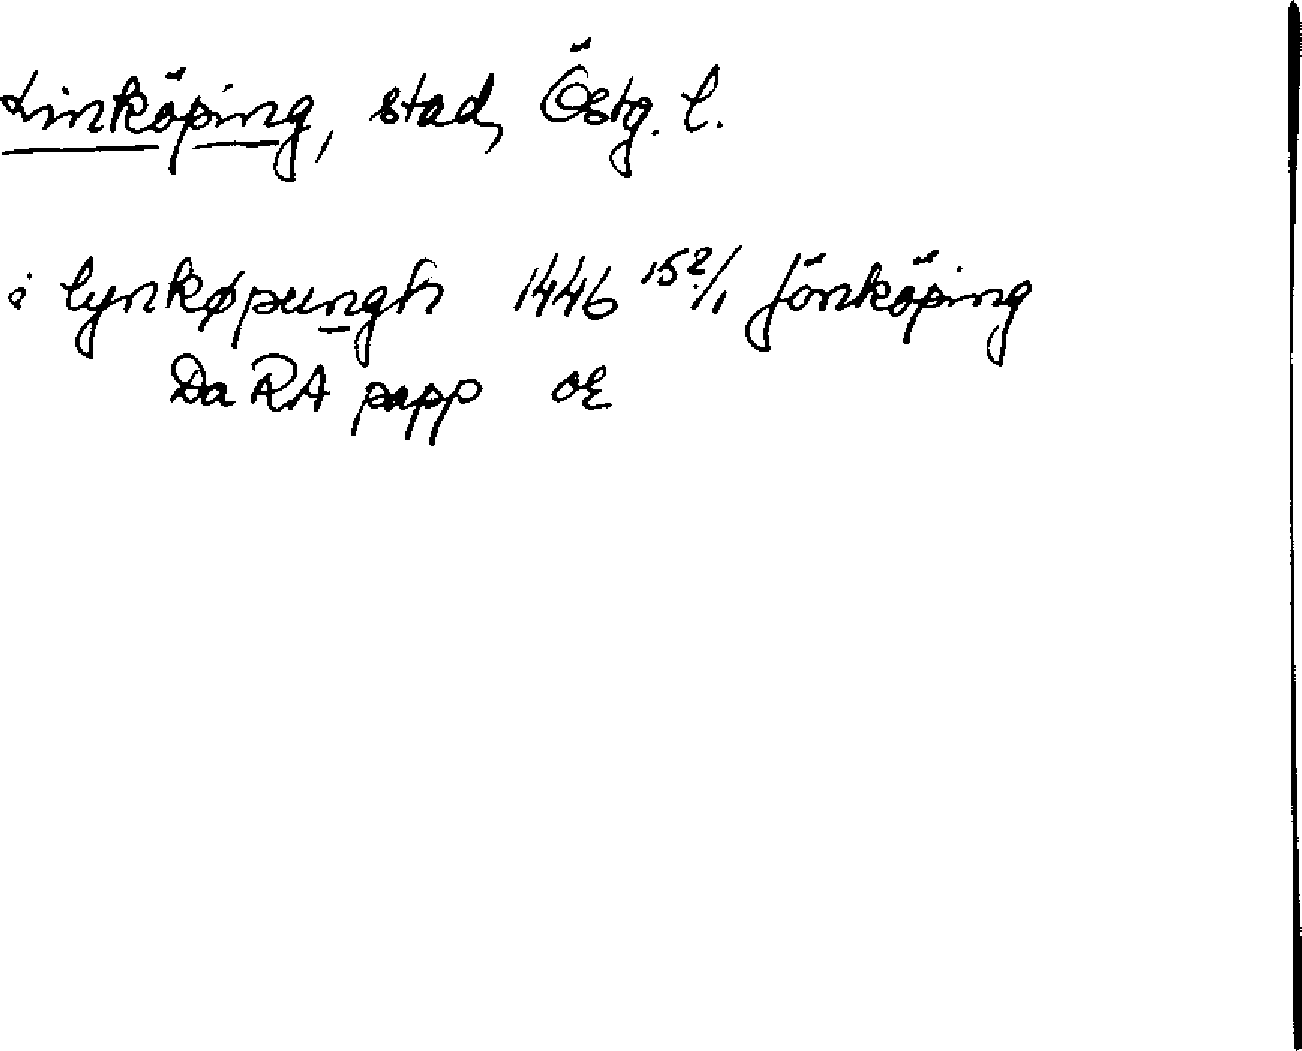 Linköping, stad, Östg. l.
i lynkøpungh 1446 15?/1 Jönköping
Da RA papp OE